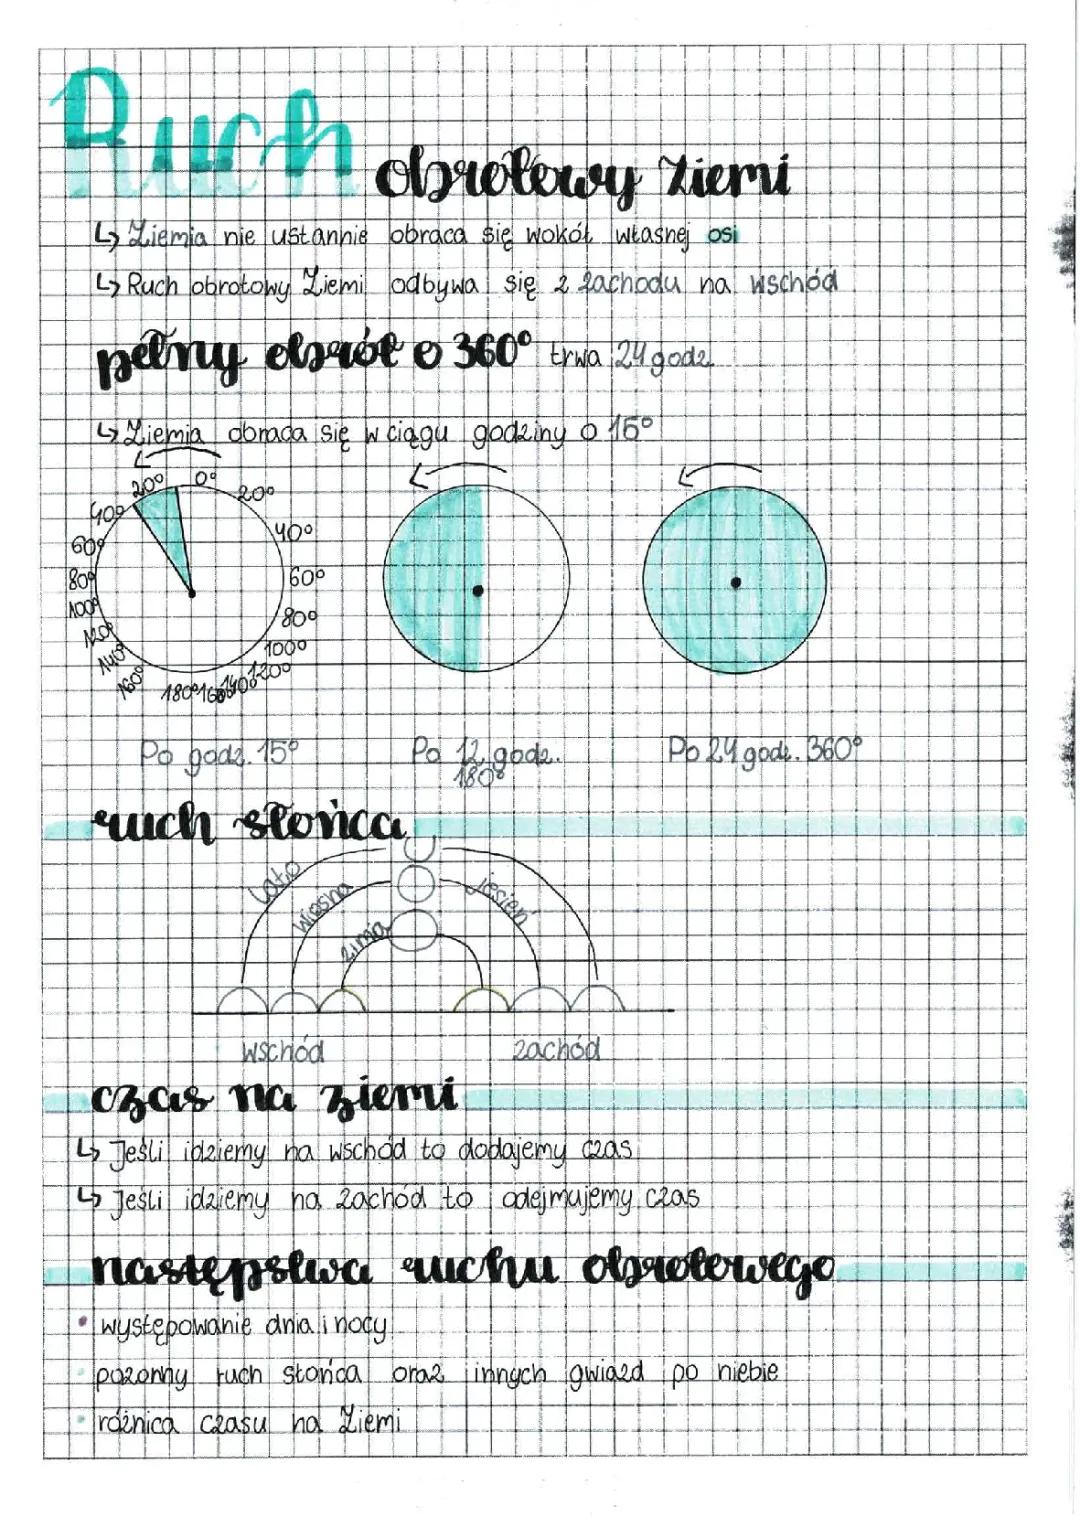 Ruch obrotowy Ziemi
↳ Ziemia nie ustannie obraca się wokół własnej osi
↳ Ruch obrotowy Ziemi odbywa się z zachodu na wschód
pełny obrót o 360° trwa 24 godz.
↳ Ziemia obraca się w ciągu godziny o 15°
20° 0° 20°
40° 40°
60° 60°
80° 80°
100° 100°
120° 120°
140° 140°
160° 180° 160°
Po godz. 15° Po 12 godz. Po 24 godz. 360°
180°
ruch słońca
lato
wiosna jesień
zima
wschód zachód
czas na ziemi
↳ Jeśli idziemy na wschód to dodajemy czas
↳ Jeśli idziemy na zachód to odejmujemy czas
następstwa ruchu obrotowego
• występowanie dnia i nocy
• pozorny ruch słońca oraz innych gwiazd po niebie
• różnica czasu na Ziemi